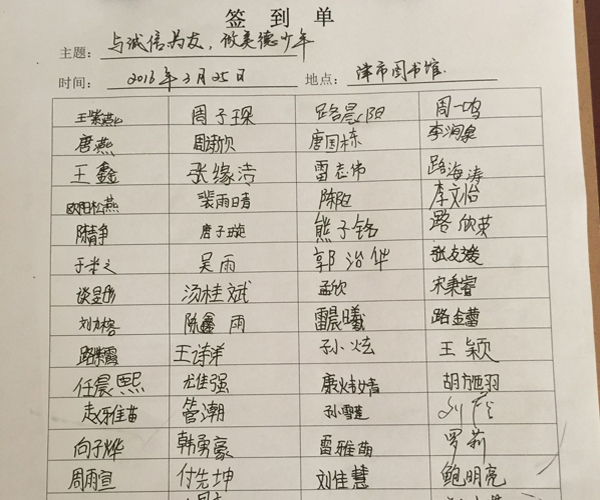 签到单
主题：与诚信为友，做美德少年
时间：2016年3月25日 地点：津市图书馆.
王紫燕 周子琛 路晨阳 周一鸣
唐燕 周沛欣 唐国栋 李润泉
王鑫 张缘浩 雷志伟 路海涛
欧阳松燕 裴雨晴 李文怡
陈静争 唐子璇 熊子铭 路欣荣
吴雨 郭治华 张友媛
汤桂斌 孟欣 宋秉睿
陈鑫雨 雷晨曦 路金蕾
路紫霞 王诗洋 孙炫 王颖
任晨熙 尤佳强 康炜婧
赵雅苗 管潮 孙雪莲
向子烨 韩勇豪 雷雅萌 罗莉
周雨宣 付先坤 刘佳慧 鲍明亮